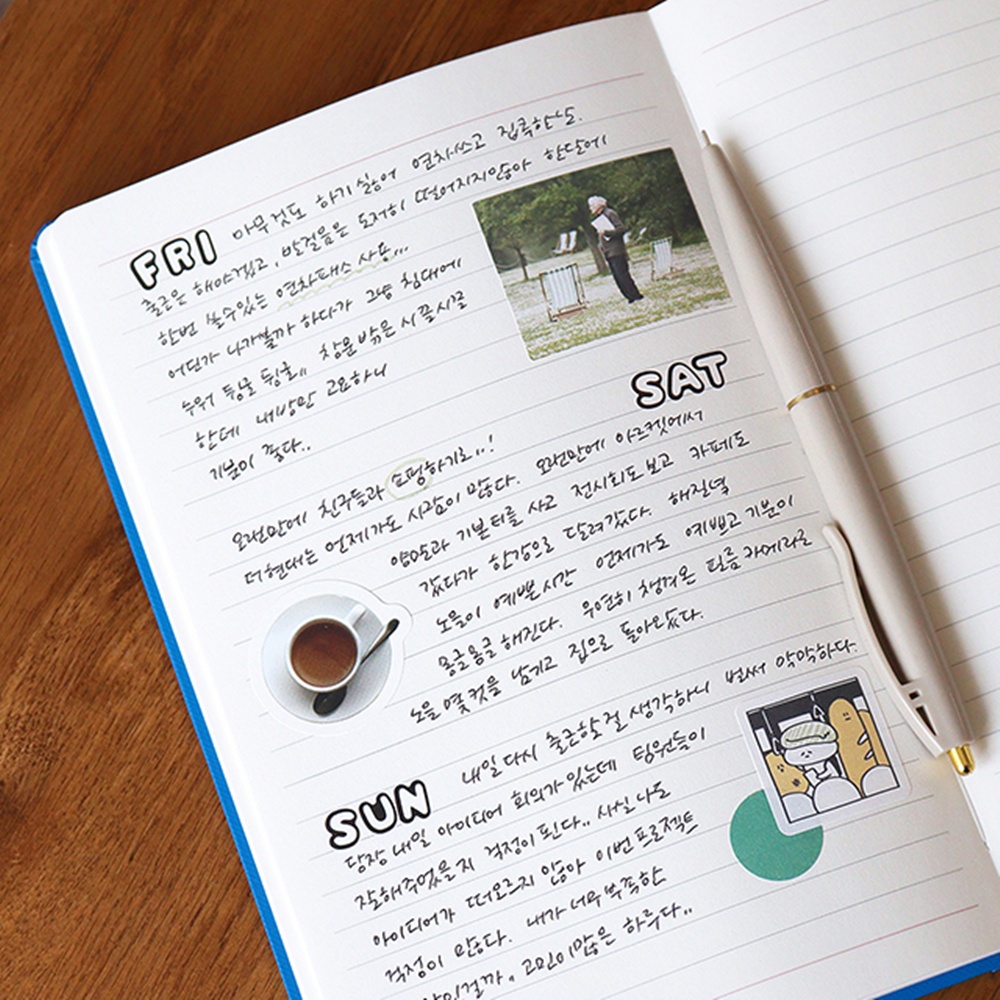 FRI
아무것도 하기 싫어 연차쓰고 집콕한 날.
출근은 해야겠고, 발걸음은 도저히 떨어지지않아 한달에
한번 쓸수있는 연차패스 사용...
어딘가 나가볼까 하다가 그냥 침대에
누워 뒹굴 뒹굴.. 창문 밖은 시끌시끌
한데 내방만 고요하니
기분이 좋다..
SAT
오랜만에 친구들과 쇼핑하기로..!
더현대는 언제가도 사람이 많다. 오랜만에 아르켓에서
양말과 기본티를 사고 전시회도 보고 카페도
갔다가 한강으로 달려갔다. 해질녘
노을이 예쁜시간 언제가도 예쁘고 기분이
몽글몽글 해진다. 우연히 챙겨온 필름카메라로
노을 몇 컷을 남기고 집으로 돌아왔다.
SUN
내일 다시 출근할 걸 생각하니 벌써 막막하다.
당장 내일 아이디어 회의가 있는데 팀원들이
잘해주었을지 걱정이 된다.. 사실 나도
아이디어가 떠오르지 않아 이번 프로젝트
걱정이 많다. 내가 너무 부족한
고민이많은 하루다..